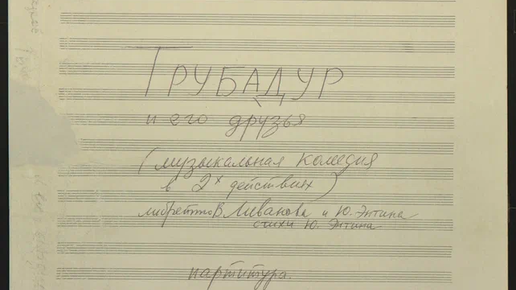 Трубадур
и его друзья
(музыкальная комедия
в 2х действиях)
либретто В. Ливанова и Ю. Энтина
стихи Ю. Энтина
партитура.